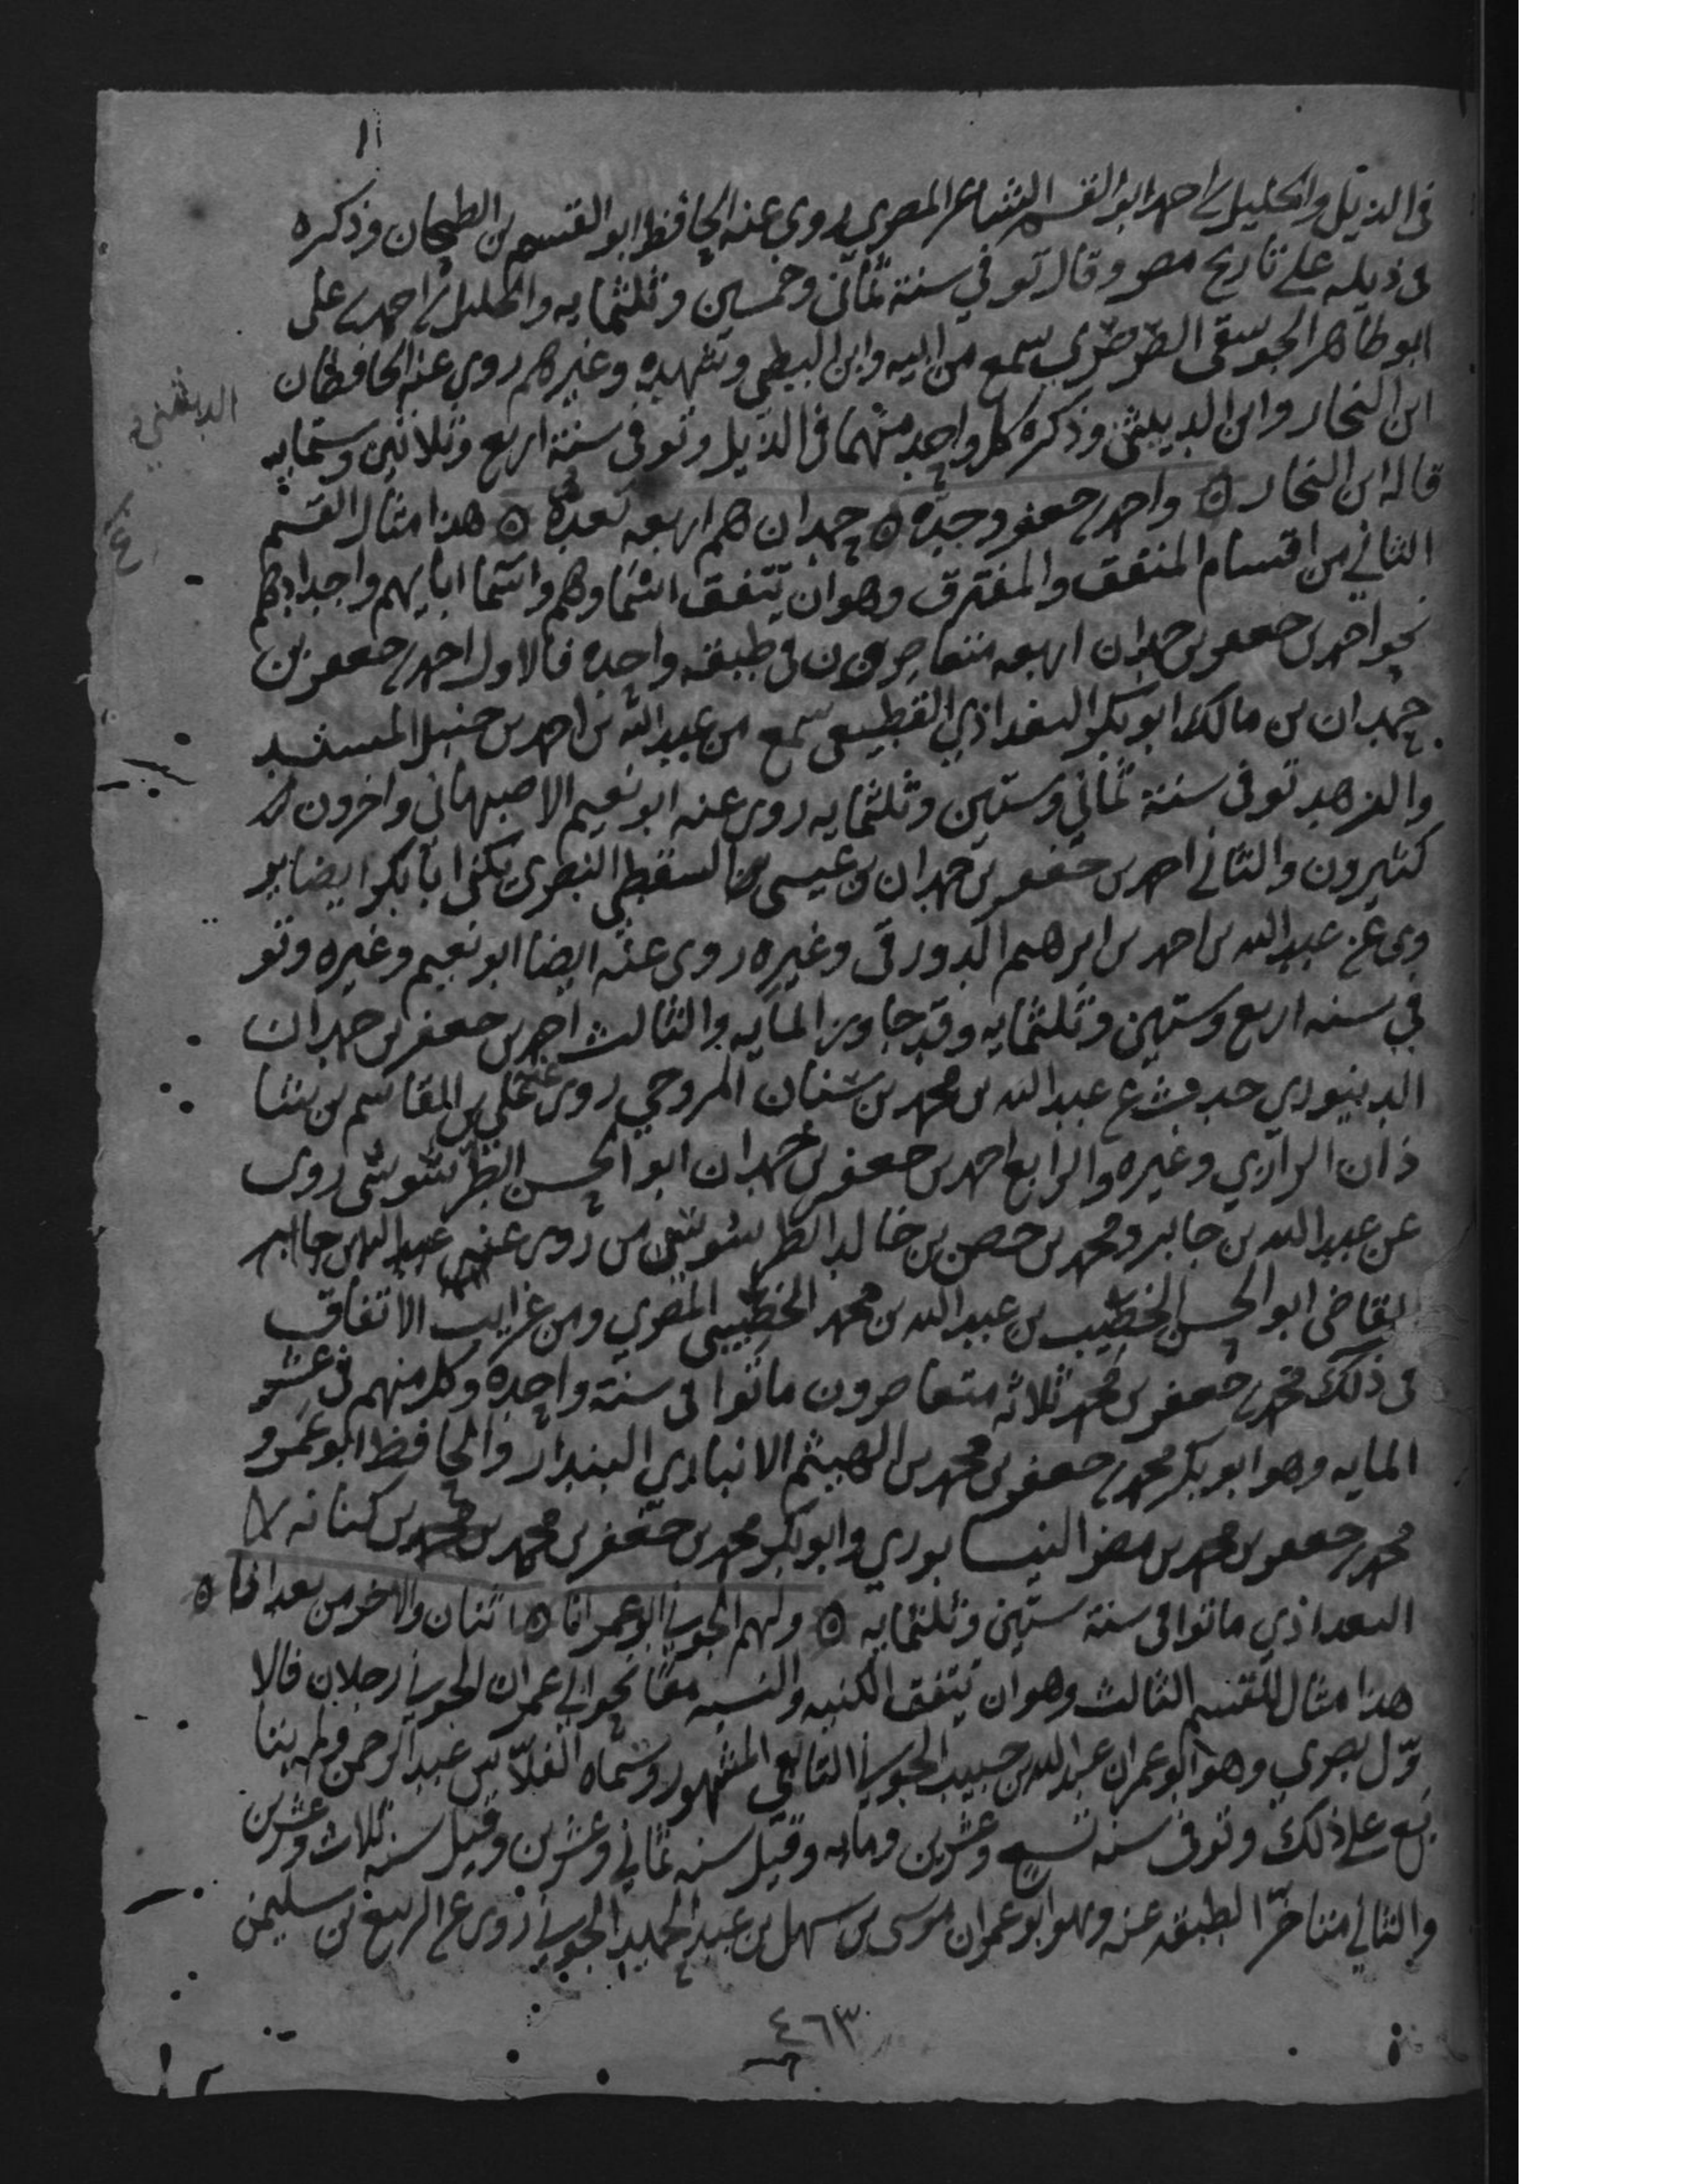 في الذيل والخليل بن احمد ابو القسم الشاعر المصري روي عنه الحافظ ابو القسم بن الطحان وذكره
في ذيله على تاريخ مصر وقال توفي سنة ثماني وخمسين وثلثمايه والخليل بن احمد بن علي
ابو طاهر الجوسقي الصرصري سمع من ابيه وابن البطي وشهده وغيرهم روي عنه الحافظان
ابن النجار وابن الدبيثي وذكره كل واحد منهما في الذيل وتوفي سنة اربع وثلاثين وستمايه
الدبيثي
قاله ابن النجار ٥ واحمد بن جعفر وجده ٥ حمدان هم اربعه تعده ٥ هذا مثال القسم
الثاني من اقسام المتفق والمفترق وهو ان تتفق اسماوهم واسما ابايهم واجدادهم
نحو احمد بن جعفر بن حمدان اربعه متعاصرون في طبقه واحده فالاول احمد بن جعفر بن
حمدان بن مالك ابو بكر البغداذي القطيعي سمع من عبد الله بن احمد بن حنبل المسند
والزهد توفي سنة ثماني وستين وثلثمايه روي عنه ابو نعيم الاصبهاني واخرون
كثيرون والثاني احمد بن جعفر بن حمدان بن عيسى السقطي البصري يكنى ابا بكر ايضا ير
وي عن عبد الله بن احمد بن ابرهيم الدورقي وغيره روي عنه ايضا ابو نعيم وغيره وتو
في سنه اربع وستين وثلثمايه وقد جاوز المايه والثالث احمد بن جعفر بن حمدان
الدينوري حدث عن عبد الله بن محمد بن سنان الروحي روي عنه علي بن القاسم بن شا
ذان الرازي وغيره والرابع احمد بن جعفر بن حمدان ابو الحسن الطرسوسي روي
عن عبد الله بن جابر ومحمد بن حصن بن خالد الطرسوسيين روي عنه عبد الله بن جابر
القاضي ابو الحسن الخصيب بن عبد الله بن محمد الخصيبي المصري ومن غرايب الاتفاق
في ذلك محمد بن جعفر بن محمد ثلاثه متعاصرون ماتوا في سنة واحده وكل منهم في عشر
المايه وهو ابو بكر محمد بن جعفر بن محمد بن الهيثم الانباري البندار والحافظ ابو عمرو
محمد بن جعفر بن محمد بن مطر النيسابوري وابو بكر محمد بن جعفر بن محمد بن كنانه
البغداذي ماتوا في سنة ستين وثلثمايه ٥ ولهم الجوني ابو عمرانا ٥ اثنان والاخر من بغدانا ٥
هذا مثال للقسم الثالث وهو ان تتفق الكنيه والنسبه معا نحو ابي عمران الجوني رجلان فالا
وّل بصري وهو ابو عمران عبد الملك بن حبيب الجوني التابعي المشهور وسماه الفلاس عبد الرحمن ولم يتا
بع على ذلك وتوفي سنه تسع وعشرين ومايه وقيل سنه ثماني وعشرين وقيل سنه ثلاث وعشرين
والثاني متاخر الطبقه عنه وهو ابو عمران موسى بن سهل بن عبد الحميد الجوني روي عن الربيع بن سليمن
٤٦٣